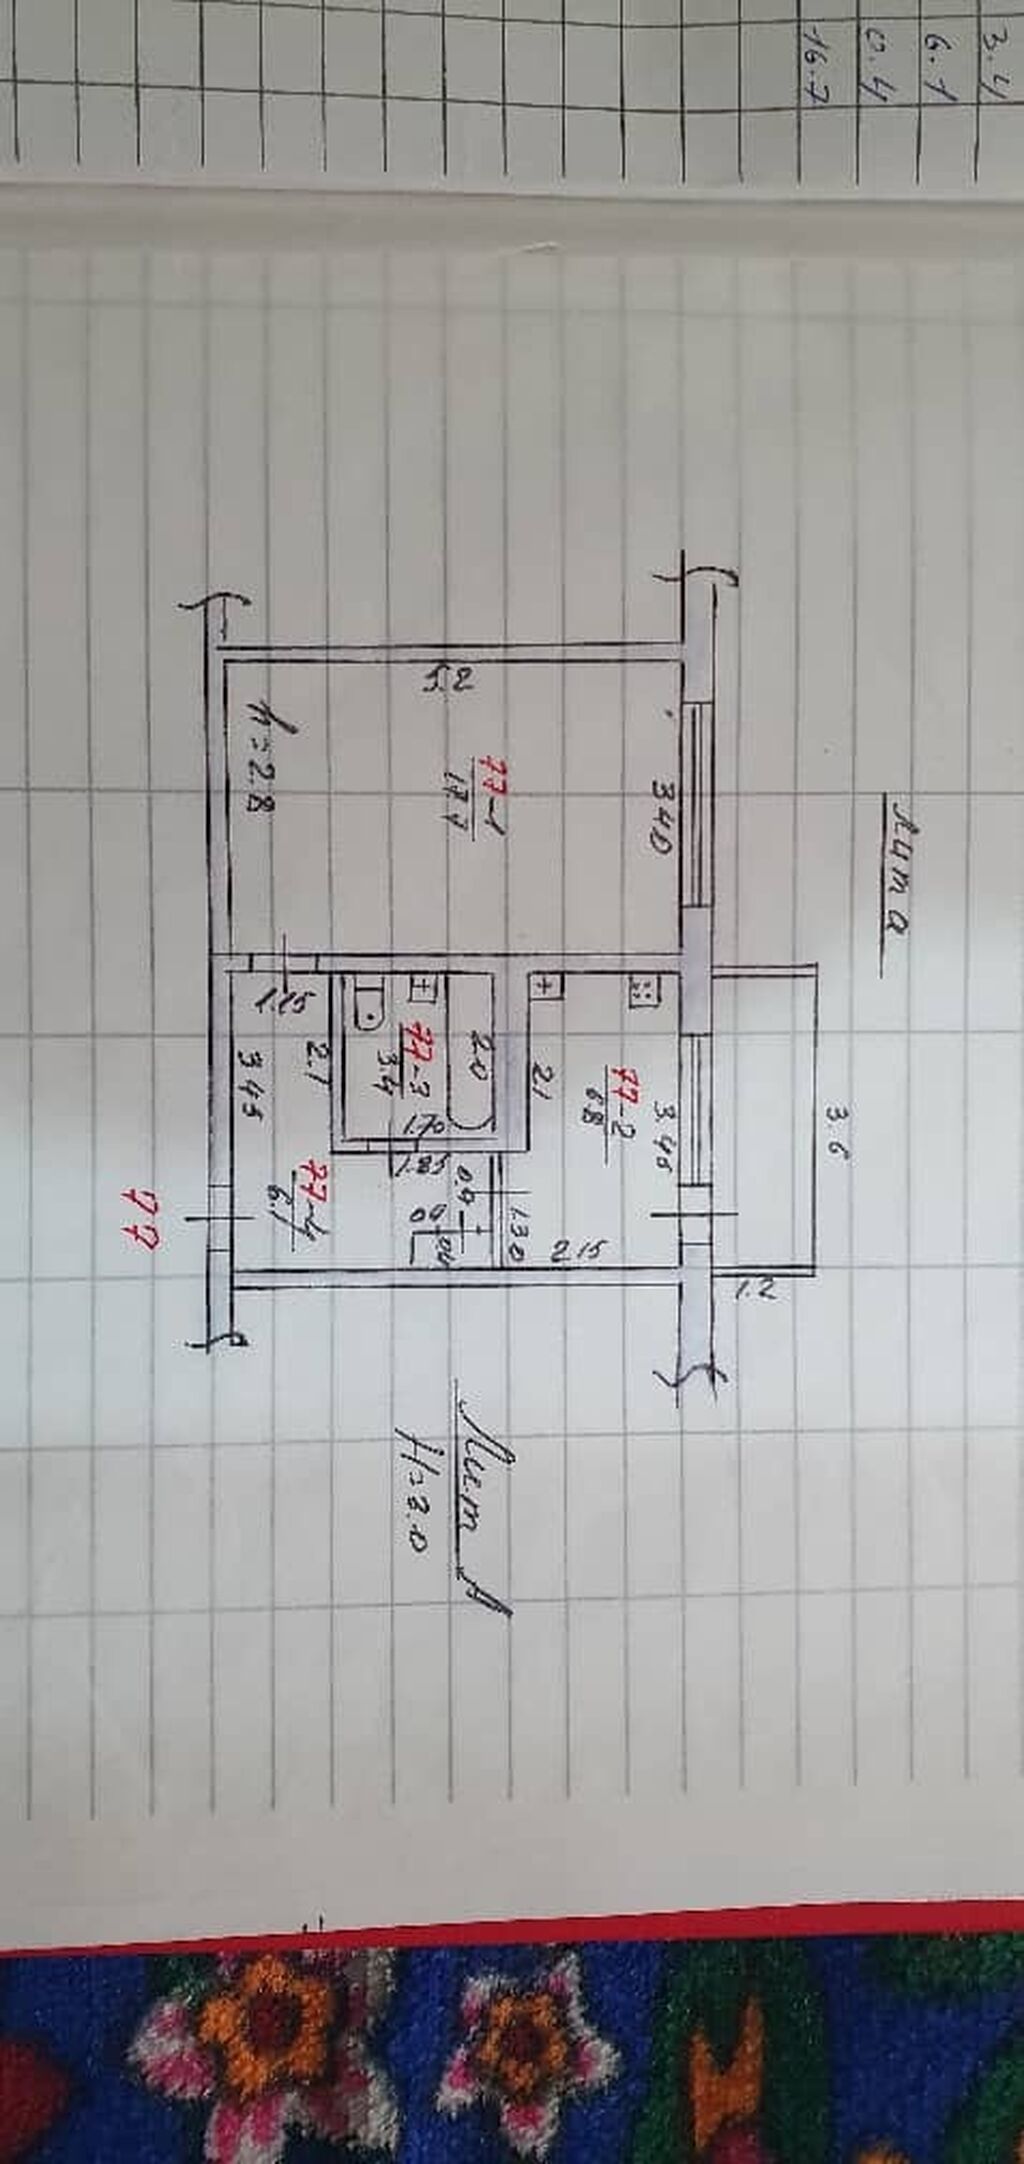 3.4
6.1
0.4
16.7
Лит а
3.6
1.2
3.40
5.2
77-1
17.7
h=2.8
3.45
77-2
6.8
2.1
2.15
1.30
2.0
77-3
3.4
1.70
1.85
0.4
2.1
1.15
3.45
77-4
6.1
77
Лит А
H=3.0